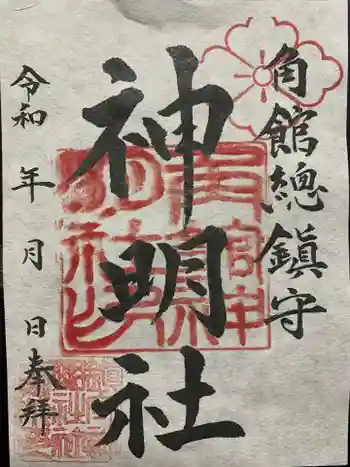 角館總鎮守
神明社
令和 年 月 日奉拝